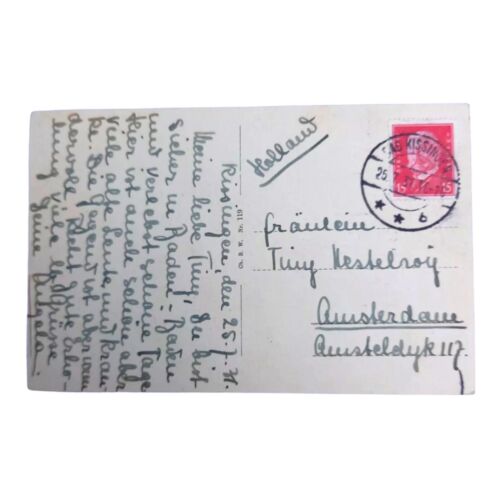 Kissingen, den 25.7.31.
Meine liebe Tiny, Du bist
sicher in Baden-Baden
und verlebst schöne Tage
Hier ist auch schön aber
viele alte Leute und Kran-
ke. Die Gegend ist aber wun
dervoll. Recht gute Erho-
lung viele Grüsse
Deine
Holland
BAD KISSINGEN
25
31
* * b
15
15
Fräulein
Tiny Kestelroy
Amsterdam
Amsteldyk 117.
Ch. B. W. Nr. 119